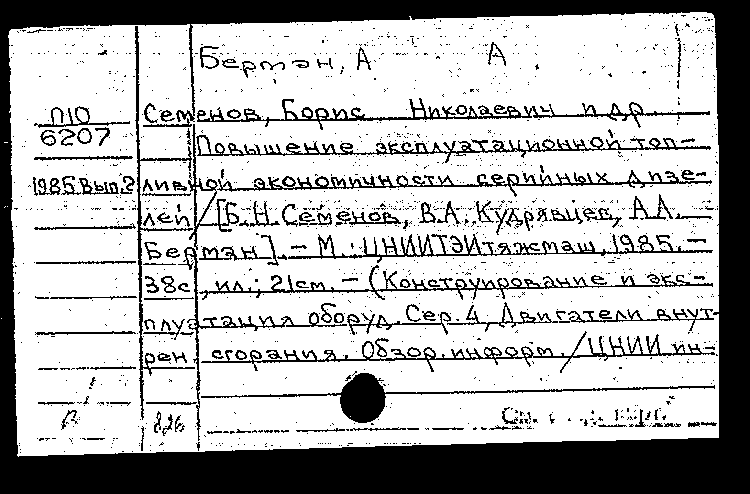 Бермэн, А А
П10 Семенов, Борис Николаевич и др.
6207 Повышение эксплуатационной топ-
1985.Вып.2 ливной экономичности серийных дизе-
лей / [Б.Н. Семенов, В.А. Кудрявцев, А.А.
Бермэн]. – М.: ЦНИИТЭИтяжмаш, 1985. –
38с., ил.; 21см. – (Конструирование и экс-
плуатация оборуд. Сер. 4, Двигатели внут-
рен. сгорания. Обзор. информ. / ЦНИИ ин-
См.